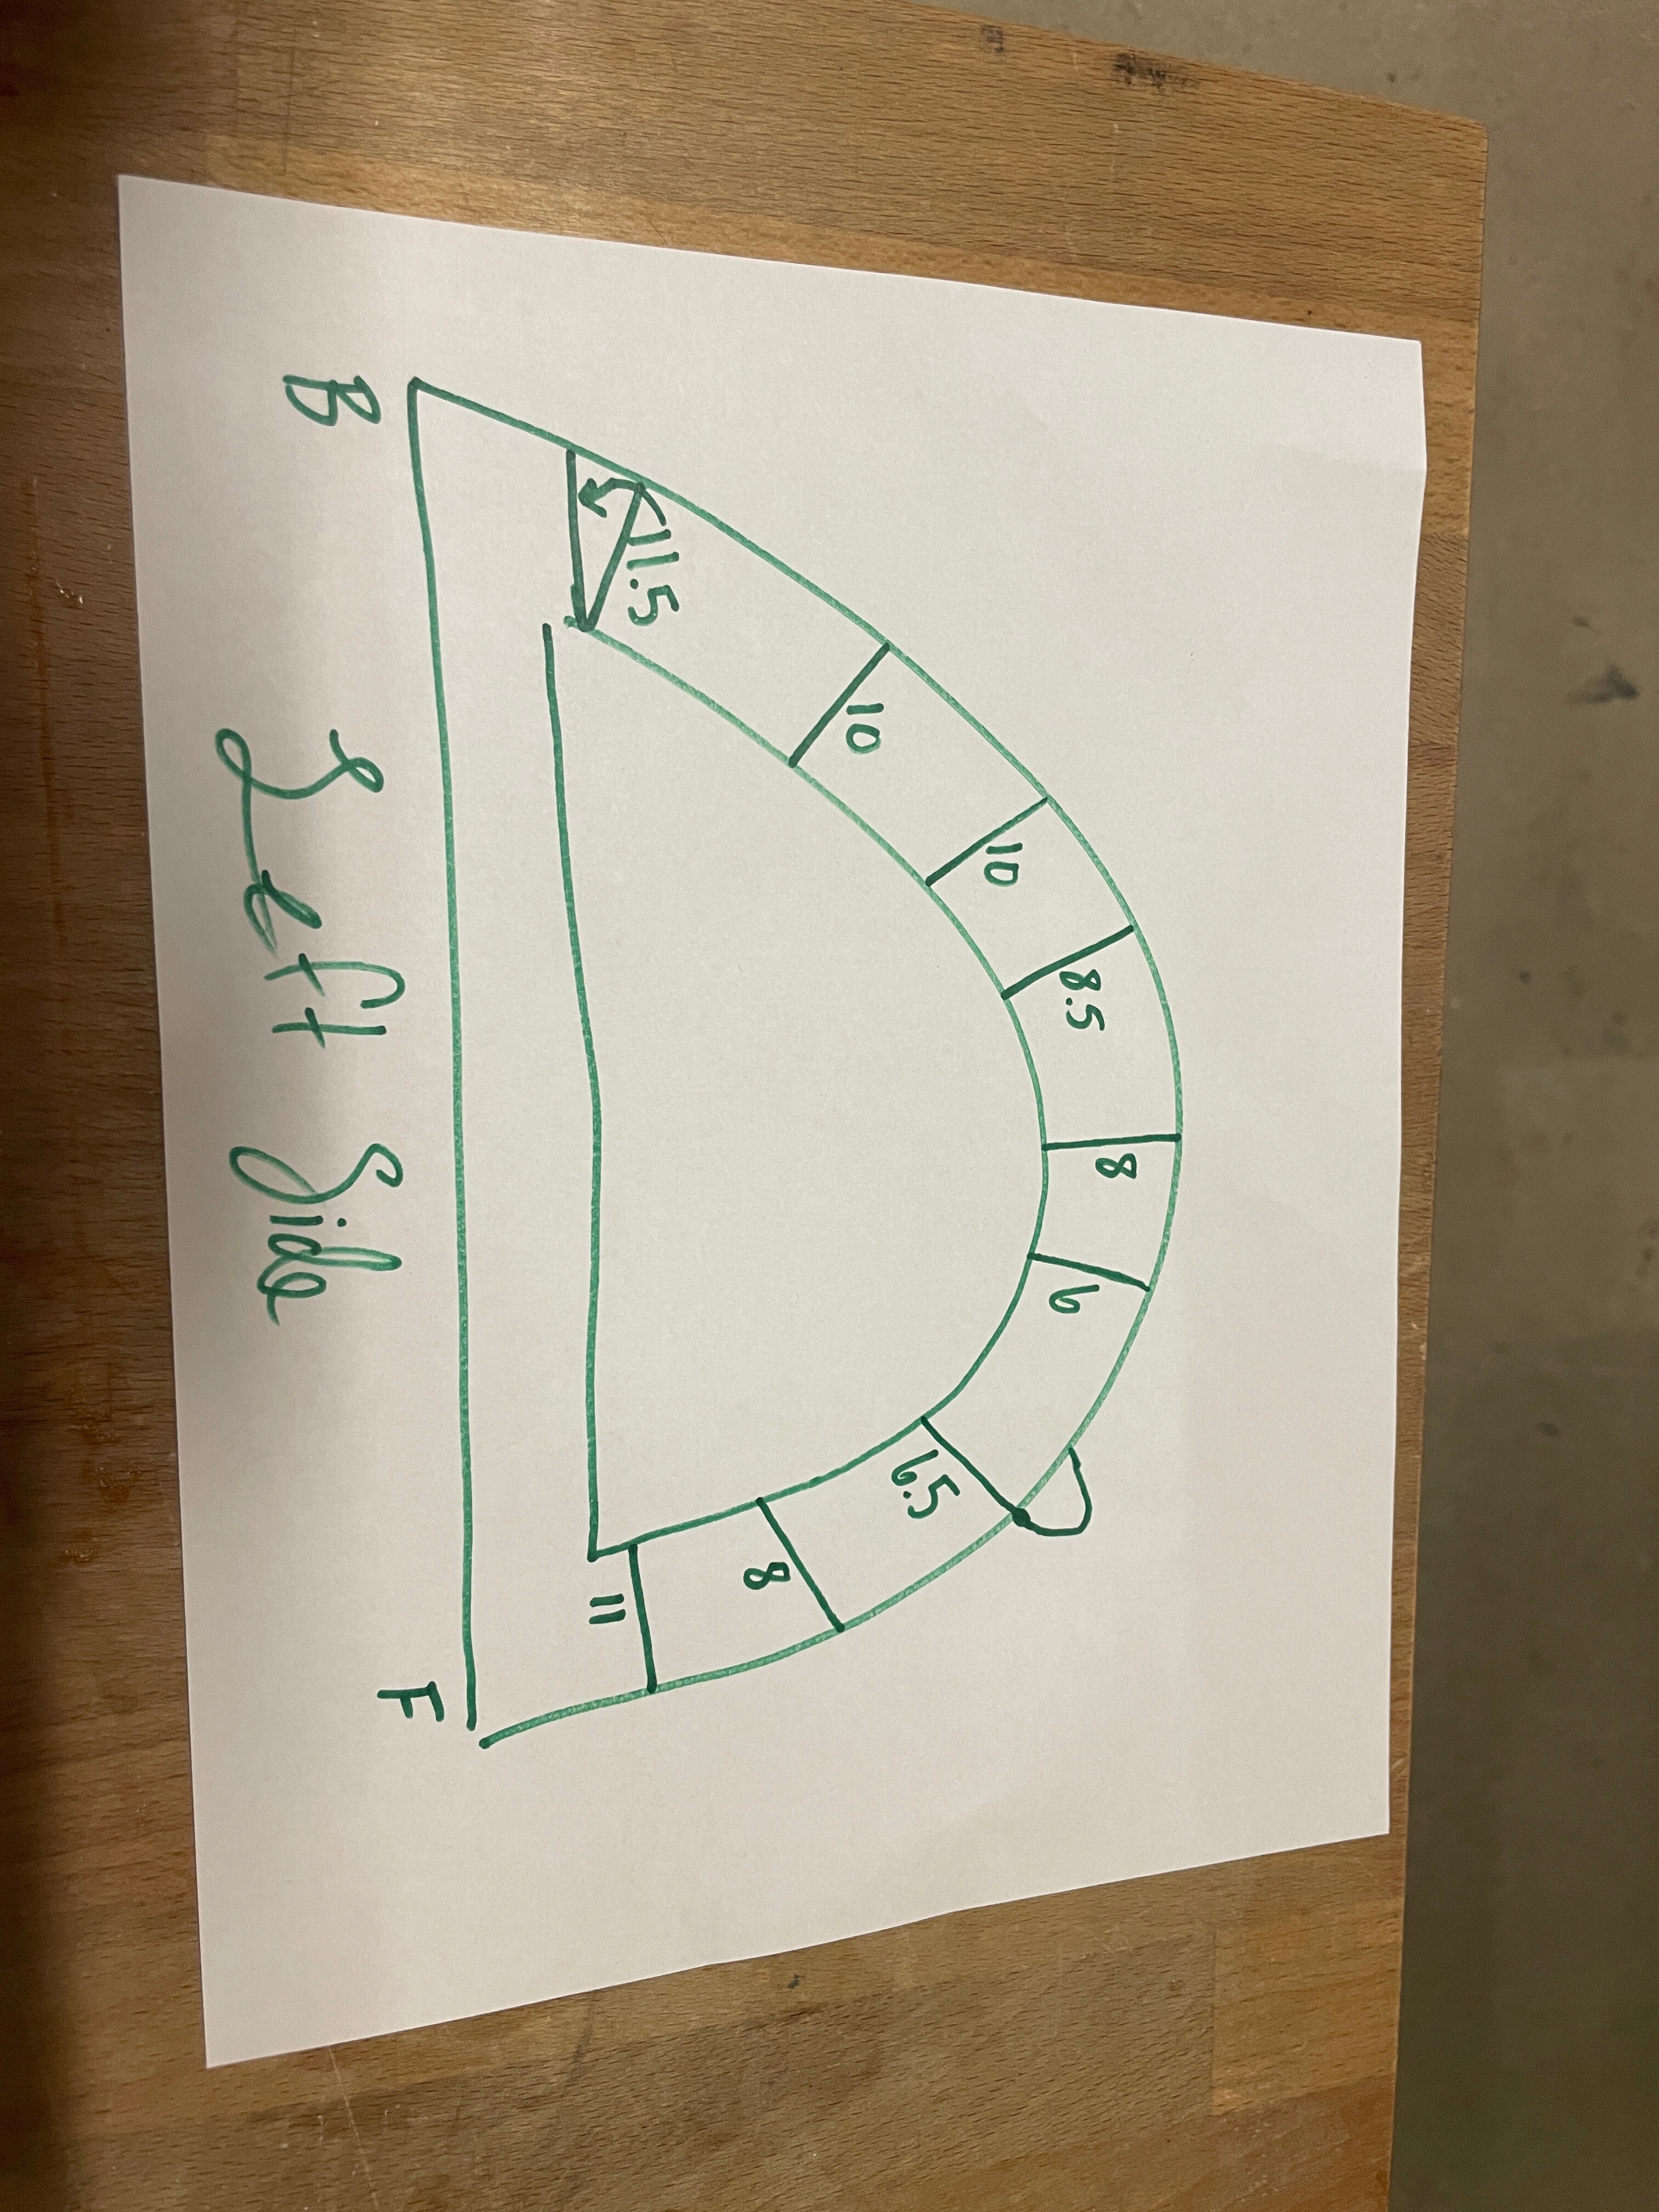 11.5
10
10
8.5
8
6
6.5
8
11
B F
Left Side